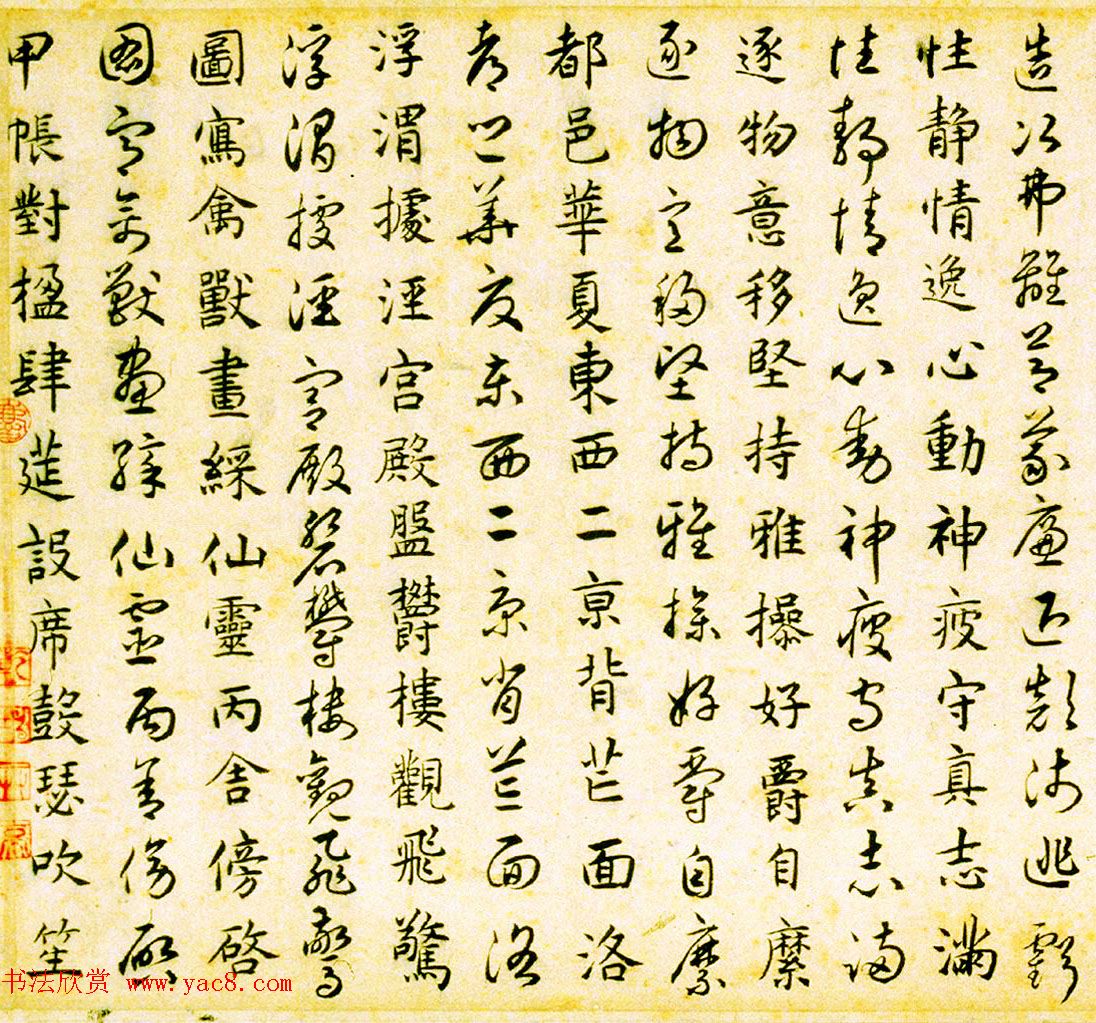 造次弗離節義廉退顛沛匪虧
性静情逸心動神疲守真志滿
性静情逸心動神疲守真志滿
逐物意移堅持雅操好爵自縻
逐物意移堅持雅操好爵自縻
都邑華夏東西二京背芒面洛
都邑華夏東西二京背芒面洛
浮渭據涇宫殿盤鬱樓觀飛驚
浮渭據涇宫殿盤鬱樓觀飛驚
圖寫禽獸畫綵仙靈丙舍傍啓
圖寫禽獸畫綵仙靈丙舍傍啓
甲帳對楹肆筵設席鼓瑟吹笙
书法欣赏 www.yac8.com